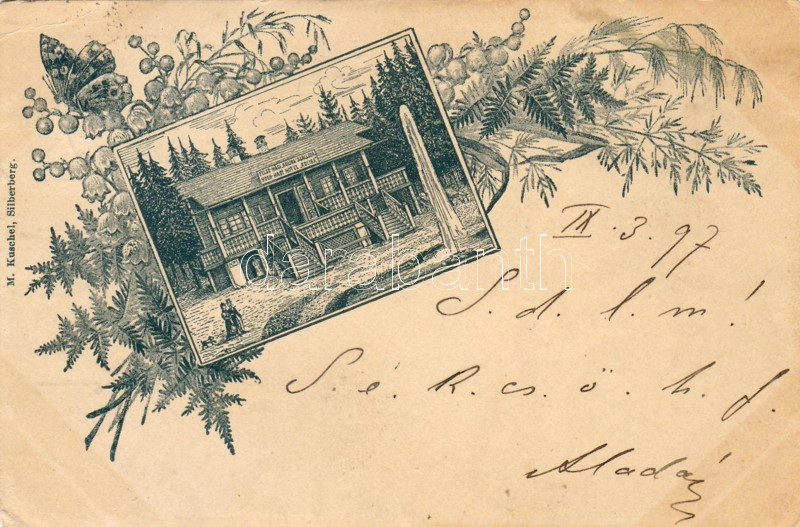 M. Kuschel, Silberberg.
IX. 3. 97
S. d. l. m!
S. é. k. cs. ö. h. f.
Aladár
darabanth